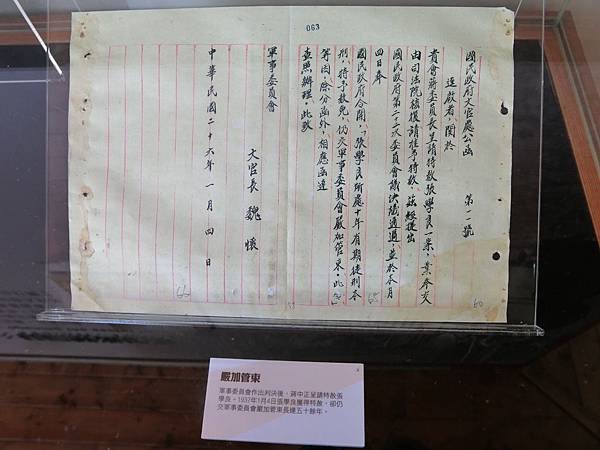 063
國民政府文官處公函　第一一號
逕啟者，關於
貴會蔣委員長呈請特赦張學良一案，業奉交
由司法院核復請准予特赦，茲經提出
國民政府第二十二次委員會議決議通過，並於本月
四日奉
國民政府令開，「張學良所處十年有期徒刑本
刑，特予赦免，仍交軍事委員會嚴加管束，此令」
等因，除分函外，相應函達
查照辦理，此致
軍事委員會
文官長　魏懷
中華民國二十六年一月四日
60
嚴加管束
軍事委員會作出判決後，蔣中正呈請特赦張
學良。1937年1月4日張學良獲得特赦，卻仍
交軍事委員會嚴加管束長達五十餘年。